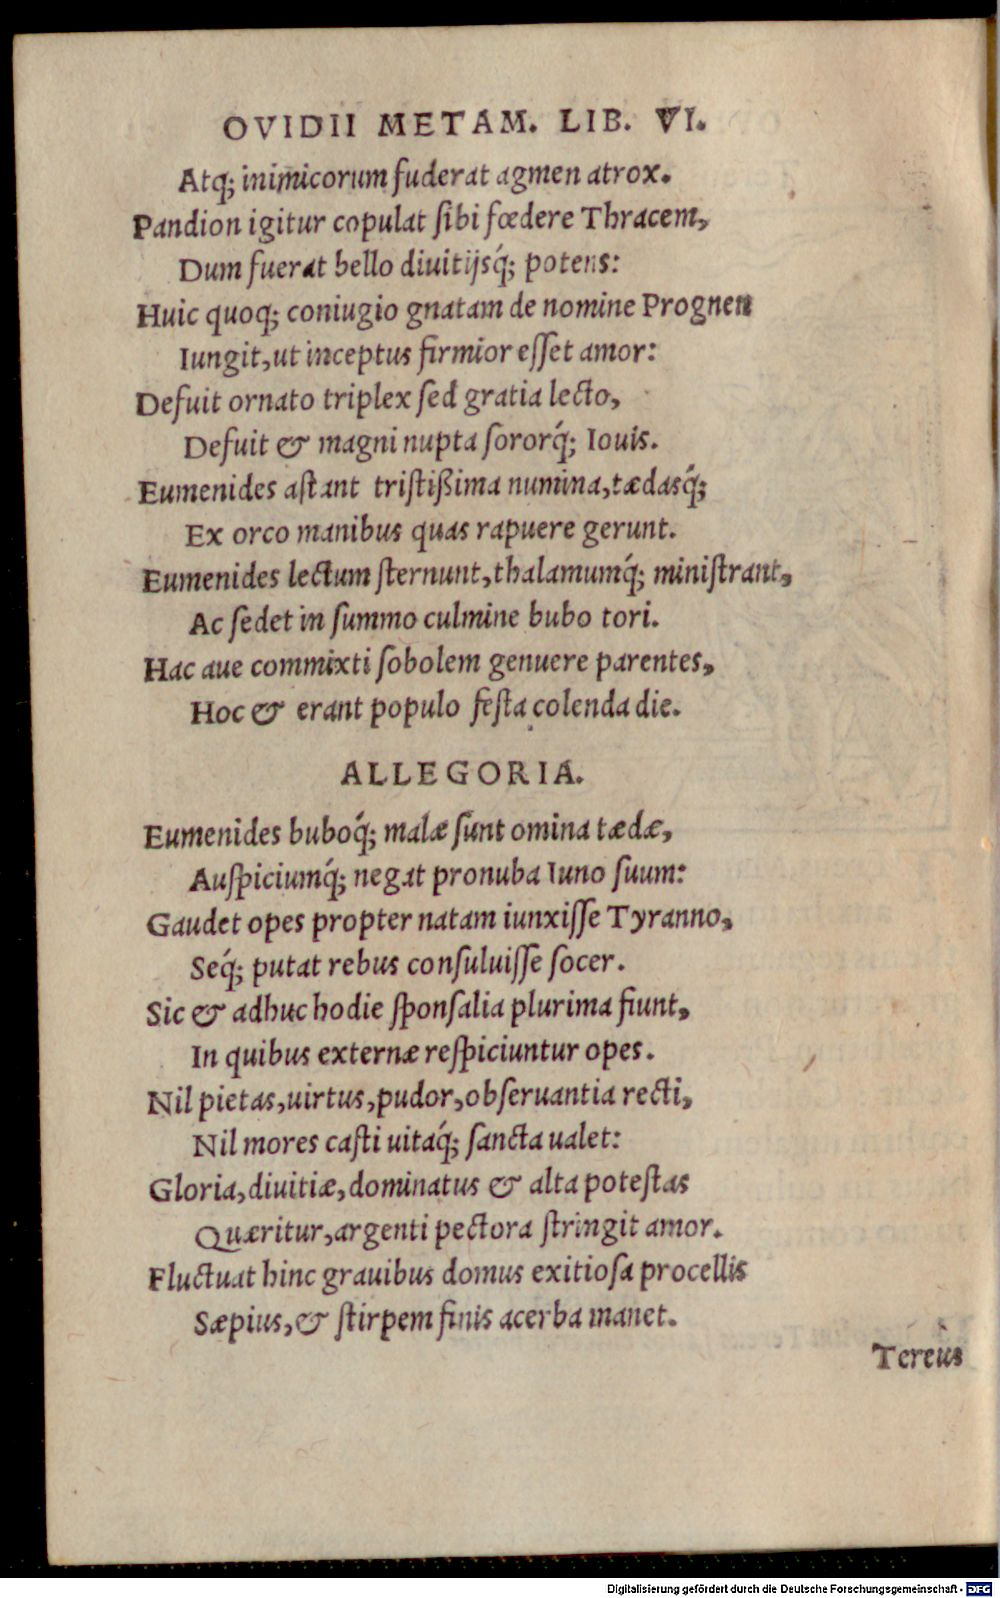 OVIDII METAM. LIB. VI.
Atq; inimicorum fuderat agmen atrox.
Pandion igitur copulat ſibi fœdere Thracem,
Dum fuerat bello diuitijsq́; potens:
Huic quoq; coniugio gnatam de nomine Prognen
Iungit, ut inceptus firmior eſſet amor:
Defuit ornato triplex ſed gratia lecto,
Defuit & magni nupta ſororq́; Iouis.
Eumenides aſtant triſtißima numina, tædasq́;
Ex orco manibus quas rapuere gerunt.
Eumenides lectum ſternunt, thalamumq́; miniſtrant,
Ac ſedet in ſummo culmine bubo tori.
Hac aue commixti ſobolem genuere parentes,
Hoc & erant populo feſta colenda die.
ALLEGORIA.
Eumenides buboq́; malæ ſunt omina tædæ,
Auſpiciumq́; negat pronuba Iuno ſuum:
Gaudet opes propter natam iunxiſſe Tyranno,
Seq́; putat rebus conſuluiſſe ſocer.
Sic & adhuc hodie ſponſalia plurima fiunt,
In quibus externæ reſpiciuntur opes.
Nil pietas, uirtus, pudor, obſeruantia recti,
Nil mores caſti uitaq́; ſancta ualet:
Gloria, diuitiæ, dominatus & alta poteſtas
Quæritur, argenti pectora ſtringit amor.
Fluctuat hinc grauibus domus exitioſa procellis
Sæpius, & ſtirpem finis acerba manet.
Tereus
Digitalisierung gefördert durch die Deutsche Forschungsgemeinschaft - DFG